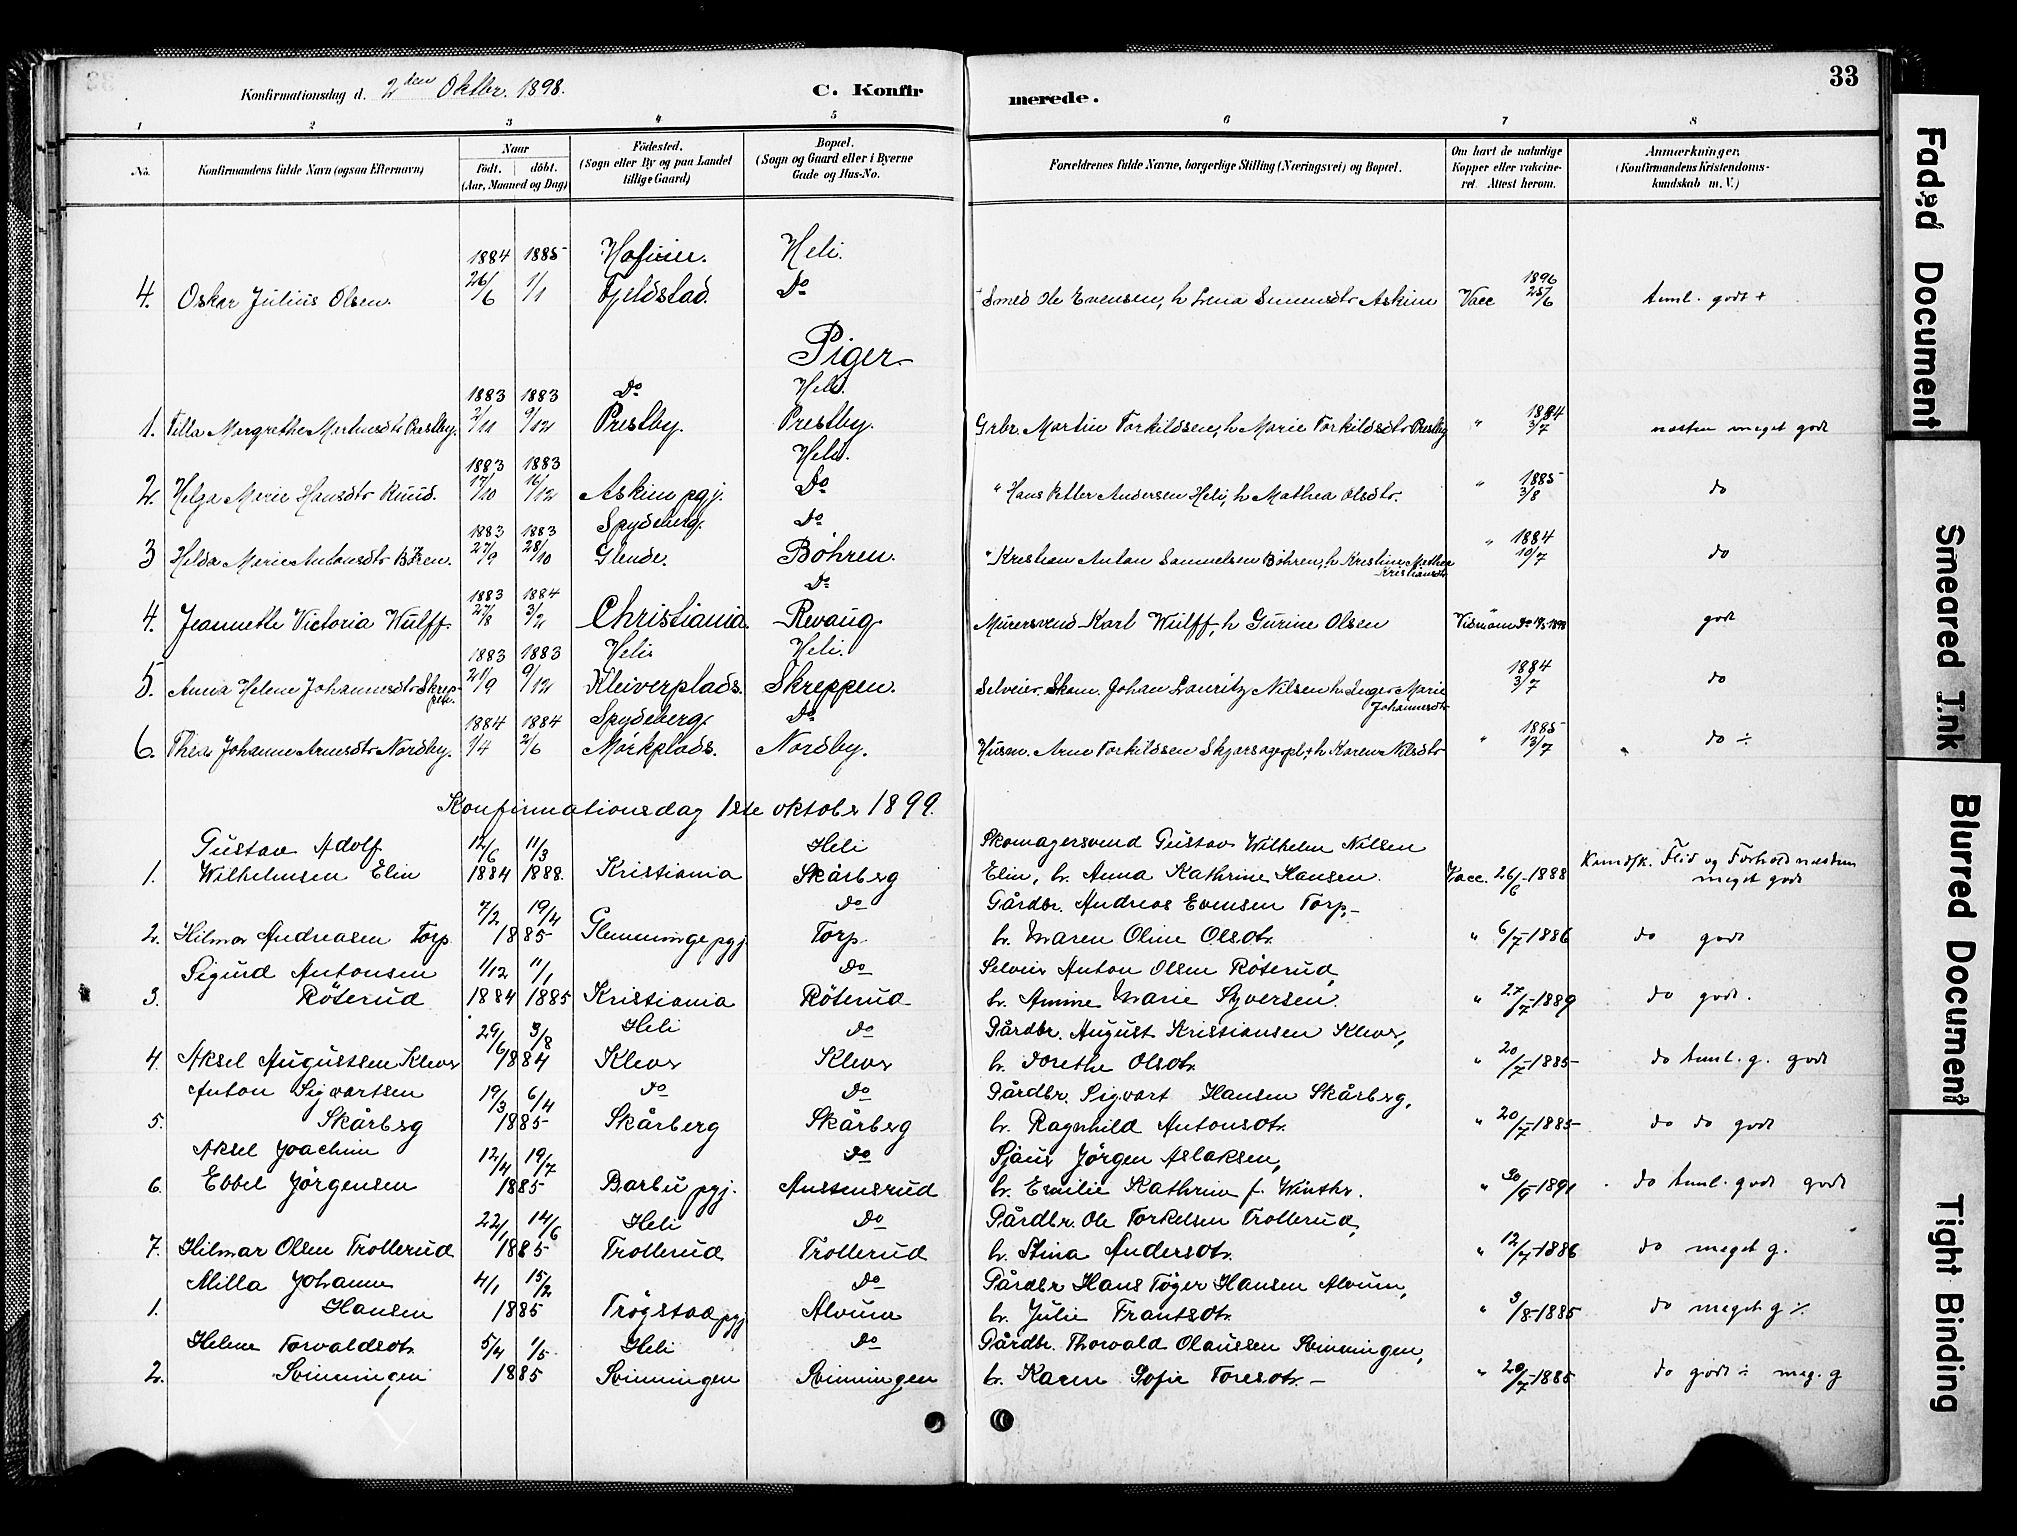 Konfirmationsdag d. 2den Oktbr. 1898.
C. Konfirmerede.
33
1 2 3 4 5 6 7 8
No.
Konfirmandens fulde Navn (ogsaa Efternavn)
Naar
født. døbt.
(Aar, Maaned og Dag)
Fødested.
(Sogn eller By og paa Landet
tillige Gaard)
Bopæl.
(Sogn og Gaard eller i Byerne
Gade og Hus-No.
Forældrenes fulde Navne, borgerlige Stilling (Næringsvei) og Bopæl.
Om havt de naturlige
Kopper eller vakcine-
ret. Attest herom.
Anmærkninger.
(Konfirmandens Kristendoms-
kundskab m. V.)
1884 1885 Hafsten. Heli. 1896
4. Oskar Julius Olsen. 26/6 1/1 Fjeldstad. Do Smed Ole Evensen, h Lena Askim Vacc 25/6 taml. godt +
Piger
1883 1883 Do Heli. 1884
1. Tilla Margrethe Martinsdtr Prestby. 2/11 9/12 Prestby. Prestby. Grbr. Martin Torkildsen, h Marie Torkildsdtr Prestby " 3/7 næsten meget godt
1883 1883 Heli. 1885
2. Helga Marie Hansdtr Ruud. 17/10 16/12 Askim pgj. Do " Hans Petter Andersen Heli, h Mathea Olsdtr. " 3/8 do
1883 1883 Spydeberg. Do 1884
3 Helda Marie Antonsdtr Böhren. 27/9 28/10 Glende. Böhren. " Kristian Anton Samuelsen Böhren, h Kristine Mathea " 10/7 do
Kristiansdtr
1883 1884 Do
4. Jeannette Victoria Wulff. 27/8 3/2 Christiania Revaug Murersvend Karl Wulff, h Gurine Olsen godt
1883 1883 Heli Heli. 1884
5. Anna Helene Johannesdtr Skrep- 21/9 9/12 Kleiverplads. Skreppen. Selveier Skom. Johan Lauritz Nilsen h. Inger Marie 3/7 do
pen. Johannesdtr
1884 1884 Spydeberg. Do 1885
6. Thea Johanne Arnesdtr Nordby. 1/4 2/6 Mörkplads. Nordby. Husm. Arne Torkildsen Skjørsagerpl, h Karen Nilsdtr " 13/7 " do ÷
Konfirmationsdag 1ste oktober 1899.
Gustav Adolf 12/6 11/3 Heli Skomagersvend Gustav Wilhelm Nilsen
1. Wilhelmsen Elin 1884 1888. Kristiania Skårberg Elin, h. Anna Kathrine Hansen. Vacc. 26/6-1888 Kundsk. Flid og Forhold næsten
meget godt
7/2 19/4 do Gårdbr. Andreas Evensen Torp,
2. Hilmar Andreasen Torp 1885 Glemminge pgj Torp h. Maren Oline Olsdtr. " 6/7-1886 do godt
Sigurd Antonsen 1/12 11/1 do Selveir Anton Olsen Röterud,
3. Röterud 1884 1885 Kristiania Röterud h. Amine Marie Syversen. " 27/7-1889 do godt.
29/6 3/8 Heli do Gårdbr. August Kristiansen Klever,
4. Aksel Augustsen Klever 1884 Klever Klever h. Dorethe Olsdtr. " 20/7-1885 do taml. g. godt
Anton Sigvartsen 19/3 6/4 do do Gårdbr. Sigvart Hansen Skårberg,
5. Skårberg 1885 Skårberg Skårberg h. Ragnhild Antonsdtr. " 20/7-1885 do do godt
Aksel Joachim 12/4 19/7 do Sjaur Jörgen Aslaksen,
6. Ebbel Jörgensen 1885 Barbu pgj. Austensrud h. Emilie Kathrine f. Winther. " 30/9-1891 do taml. godt godt
22/1 14/6 Heli do Gårdbr. Ole Torkelsen Trollerud,
7. Hilmar Olsen Trollerud 1885 Trollerud Trollerud h. Stina Andersdtr. " 12/7-1886 do meget g.
Milla Johanne 4/1 15/2 do Gårdbr Hans Töger Hansen Alvum,
1. Hansen 1885 Trögstad pgj Alvum h. Julie Frantsdtr. " 3/8-1885 do meget g ÷
Helene Torvaldsdtr. 5/4 1/5. Heli do Gårdbr. Thorvald Olaussen Svinningen,
2. Svinningen 1885 Svinningen Svinningen h. Karen Sofie Toresdtr. – " 20/7-1885 do godt ÷ meg. g
Faded Document
Smeared Ink
Blurred Document
Tight Binding